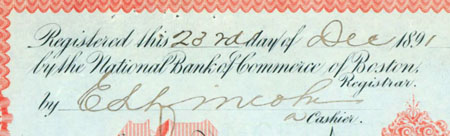 Registered this 23rd day of Dec 1891
by the National Bank of Commerce of Boston,
Registrar.
by
Cashier.